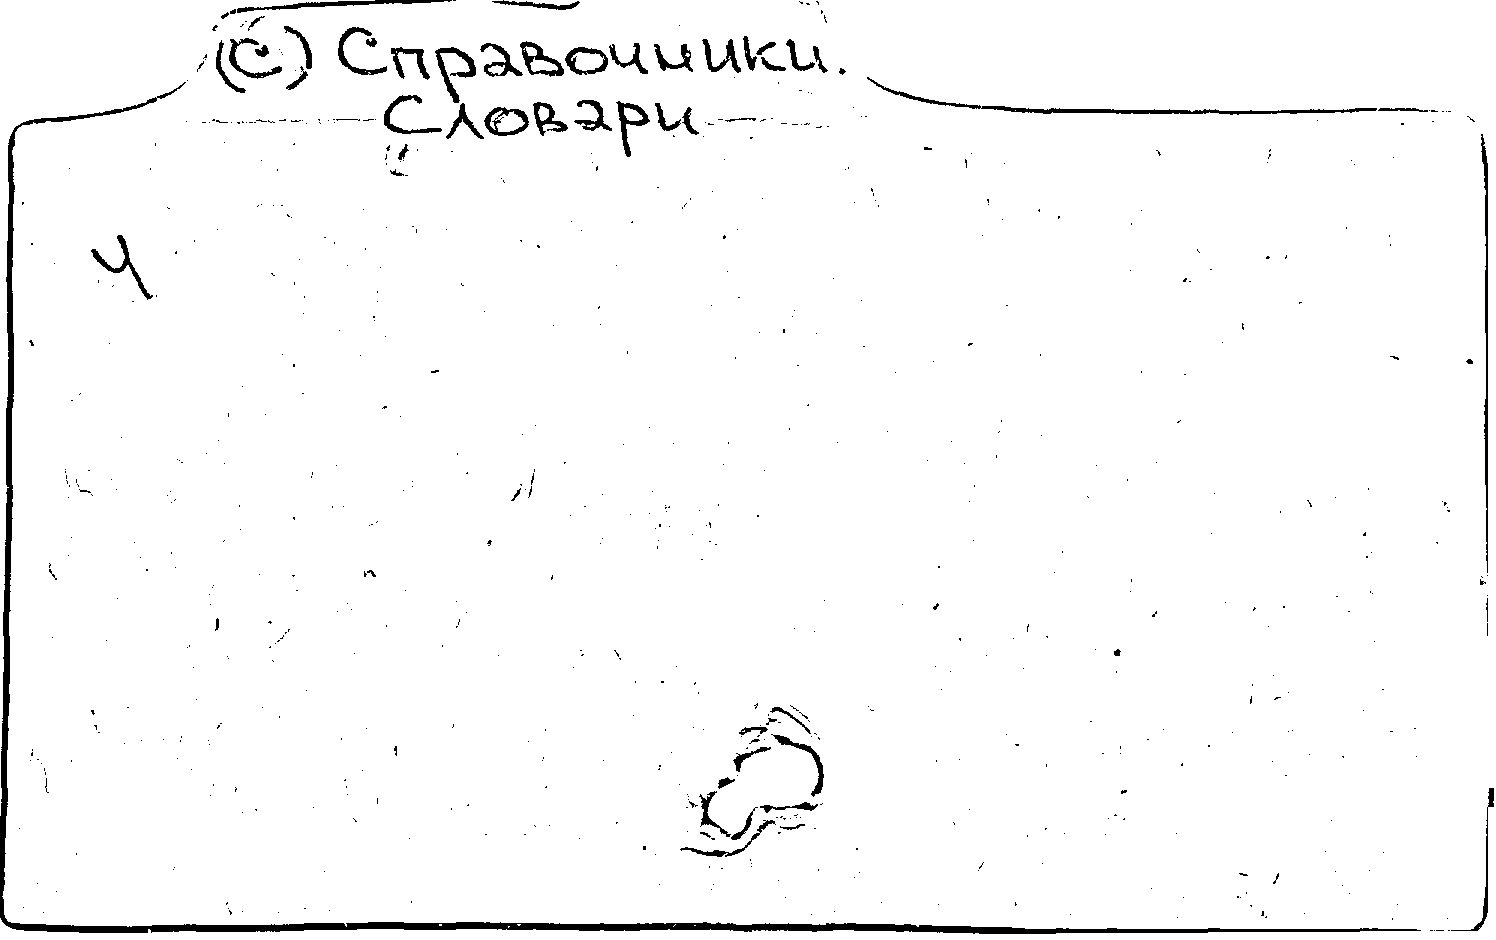 (С) Справочники.
Словари
Ч